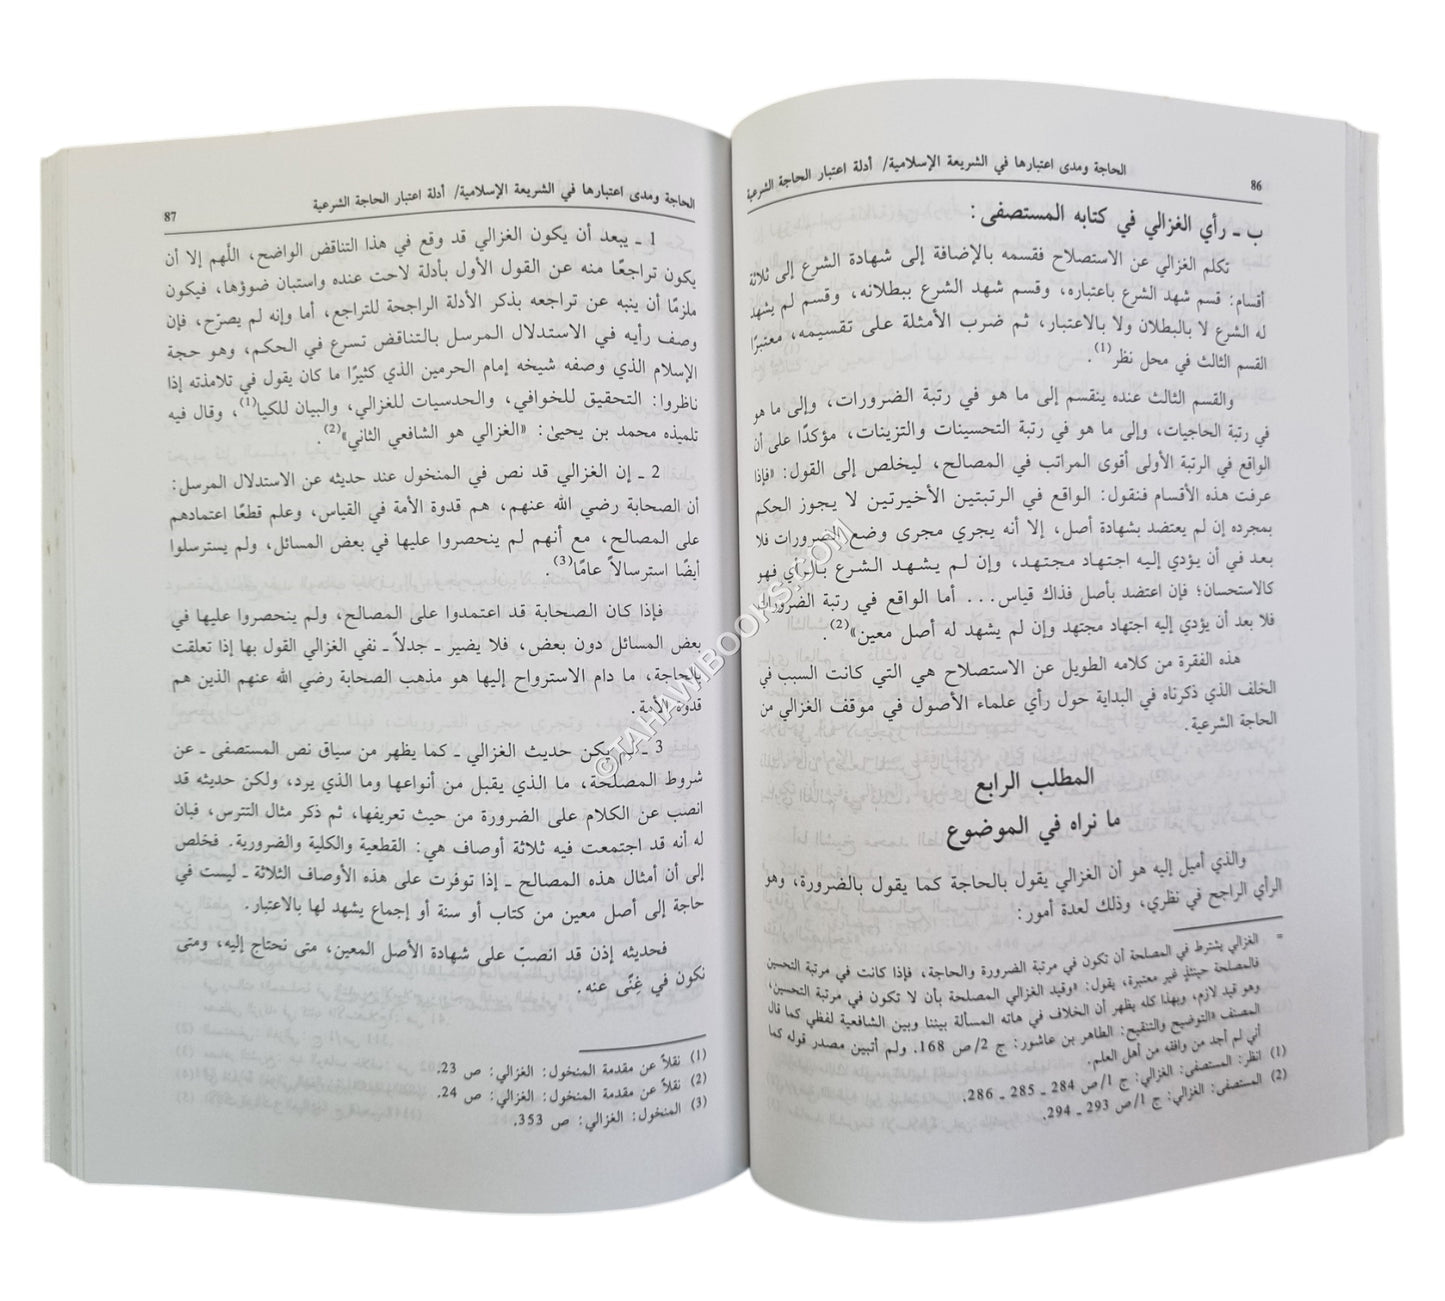 86
الحاجة ومدى اعتبارها في الشريعة الإسلامية/ أدلة اعتبار الحاجة الشرعية
ب ـ رأي الغزالي في كتابه المستصفى:
تكلم الغزالي عن الاستصلاح فقسمه بالإضافة إلى شهادة الشرع إلى ثلاثة
أقسام: قسم شهد الشرع باعتباره، وقسم شهد الشرع ببطلانه، وقسم لم يشهد
له الشرع لا بالبطلان ولا بالاعتبار، ثم ضرب الأمثلة على تقسيمه، معتبرًا
القسم الثالث في محل نظر(1).
والقسم الثالث عنده ينقسم إلى ما هو في رتبة الضرورات، وإلى ما هو
في رتبة الحاجيات، وإلى ما هو في رتبة التحسينات والتزينات، مؤكدًا على أن
الواقع في الرتبة الأولى أقوى المراتب في المصالح، ليخلص إلى القول: «فإذا
عرفت هذه الأقسام فنقول: الواقع في الرتبتين الأخيرتين لا يجوز الحكم
بمجرده إن لم يعتضد بشهادة أصل، إلا أنه يجري مجرى وضع الضرورات فلا
بعد في أن يؤدي إليه اجتهاد مجتهد، وإن لم يشهد الشرع بالرأي فهو
كالاستحسان؛ فإن اعتضد بأصل فذاك قياس... أما الواقع في رتبة الضرورات
فلا بعد أن يؤدي إليه اجتهاد مجتهد وإن لم يشهد له أصل معين»(2).
هذه الفقرة من كلامه الطويل عن الاستصلاح هي التي كانت السبب في
الخلف الذي ذكرناه في البداية حول رأي علماء الأصول في موقف الغزالي من
الحاجة الشرعية.
المطلب الرابع
ما نراه في الموضوع
والذي أميل إليه هو أن الغزالي يقول بالحاجة كما يقول بالضرورة، وهو
الرأي الراجح في نظري، وذلك لعدة أمور:
= الغزالي يشترط في المصلحة أن تكون في مرتبة الضرورة والحاجة، فإذا كانت في مرتبة التحسين
فالمصلحة حينئذٍ غير معتبرة، يقول: «وقيد الغزالي المصلحة بأن لا تكون في مرتبة التحسين،
وهو قيد لازم، وبهذا كله يظهر أن الخلاف في هاته المسألة بيننا وبين الشافعية لفظي كما قال
المصنف «التوضيح والتنقيح: الطاهر بن عاشور: ج 2/ ص 168. ولم أتبين مصدر قوله كما
أني لم أجد من وافقه من أهل العلم.
(1) انظر: المستصفى: الغزالي: ج 1/ ص 284 ـ 285 ـ 286.
(2) المستصفى: الغزالي: ج 1/ ص 293 ـ 294.
الحاجة ومدى اعتبارها في الشريعة الإسلامية/ أدلة اعتبار الحاجة الشرعية
87
1 ـ يبعد أن يكون الغزالي قد وقع في هذا التناقض الواضح، اللّهم إلا أن
يكون تراجعًا منه عن القول الأول بأدلة لاحت عنده واستبان ضوؤها، فيكون
ملزمًا أن ينبه عن تراجعه بذكر الأدلة الراجحة للتراجع، أما وإنه لم يصرّح، فإن
وصف رأيه في الاستدلال المرسل بالتناقض تسرع في الحكم، وهو حجة
الإسلام الذي وصفه شيخه إمام الحرمين الذي كثيرًا ما كان يقول في تلامذته إذا
ناظروا: التحقيق للخوافي، والحدسيات للغزالي، والبيان للكيا(1)، وقال فيه
تلميذه محمد بن يحيىٰ: «الغزالي هو الشافعي الثاني»(2).
2 ـ إن الغزالي قد نص في المنخول عند حديثه عن الاستدلال المرسل:
أن الصحابة رضي الله عنهم، هم قدوة الأمة في القياس، وعلم قطعًا اعتمادهم
على المصالح، مع أنهم لم ينحصروا عليها في بعض المسائل، ولم يسترسلوا
أيضًا استرسالاً عامًا(3).
فإذا كان الصحابة قد اعتمدوا على المصالح، ولم ينحصروا عليها في
بعض المسائل دون بعض، فلا يضير ـ جدلاً ـ نفي الغزالي القول بها إذا تعلقت
بالحاجة، ما دام الاسترواح إليها هو مذهب الصحابة رضي الله عنهم الذين هم
قدوة الأمة.
3 ـ لم يكن حديث الغزالي ـ كما يظهر من سياق نص المستصفى ـ عن
شروط المصلحة، ما الذي يقبل من أنواعها وما الذي يرد، ولكن حديثه قد
انصب عن الكلام على الضرورة من حيث تعريفها، ثم ذكر مثال التترس، فبان
له أنه قد اجتمعت فيه ثلاثة أوصاف هي: القطعية والكلية والضرورية. فخلص
إلى أن أمثال هذه المصالح ـ إذا توفرت على هذه الأوصاف الثلاثة ـ ليست في
حاجة إلى أصل معين من كتاب أو سنة أو إجماع يشهد لها بالاعتبار.
فحديثه إذن قد انصبّ على شهادة الأصل المعين، متى نحتاج إليه، ومتى
نكون في غِنًى عنه.
(1) نقلاً عن مقدمة المنخول: الغزالي: ص 23.
(2) نقلاً عن مقدمة المنخول: الغزالي: ص 24.
(3) المنخول: الغزالي: ص 353.
©TAHAWIBOOKS.COM